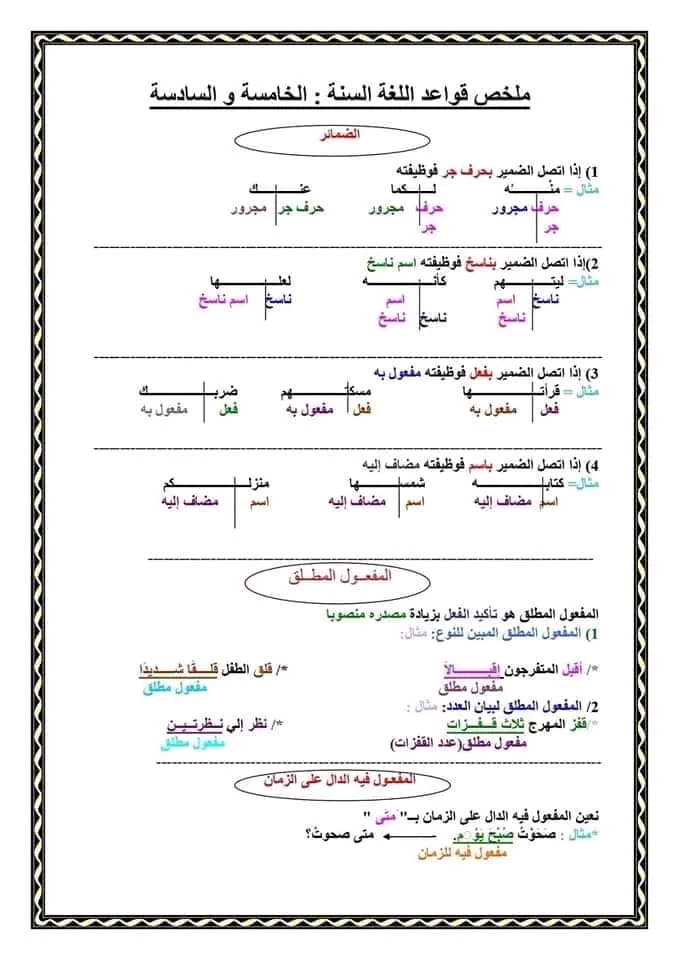 ملخص قواعد اللغة السنة : الخامسة و السادسة
الضمائر
1) إذا اتصل الضمير بحرف جر فوظيفته
مثال = منْــــــــــه لـــــكما عنـــــــــــك
حرف مجرور حرف مجرور حرف جر مجرور
جر جر
2)إذا اتصل الضمير بناسخ فوظيفته اسم ناسخ
مثال= ليتــــــــهم كأنــــــــــــه لعلـــــــــــــها
ناسخ اسم اسم ناسخ اسم ناسخ
ناسخ ناسخ ناسخ
3) إذا اتصل الضمير بفعل فوظيفته مفعول به
مثال = قرأتــــــــــــــها مسكتـــــــــــهم ضربـــــــــــــك
فعل مفعول به فعل مفعول به فعل مفعول به
4) إذا اتصل الضمير باسم فوظيفته مضاف إليه
مثال= كتابــــــــــــــه شمســــــــــها منزلــــــــــــــــكم
اسم مضاف إليه اسم مضاف إليه اسم مضاف إليه
المفعــول المطــلق
المفعول المطلق هو تأكيد الفعل بزيادة مصدره منصوبا
1) المفعول المطلق المبين للنوع: مثال:
*/ أقبل المتفرجون إقبـــــــالاً */ قلق الطفل قلـــقًا شـــــديدًا
مفعول مطلق مفعول مطلق
2/ المفعول المطلق لبيان العدد: مثال :
*/قفز المهرج ثلاث قــفــزات */ نظر إلي نــظرتــيــن
مفعول مطلق(عدد القفزات) مفعول مطلق
المفعول فيه الدال على الزمان
نعين المفعول فيه الدال على الزمان بــ" متى "
*مثال : صَحَوْتُ صُبْحَ يَوْمٍ. متى صحوتُ؟
مفعول فيه للزمان